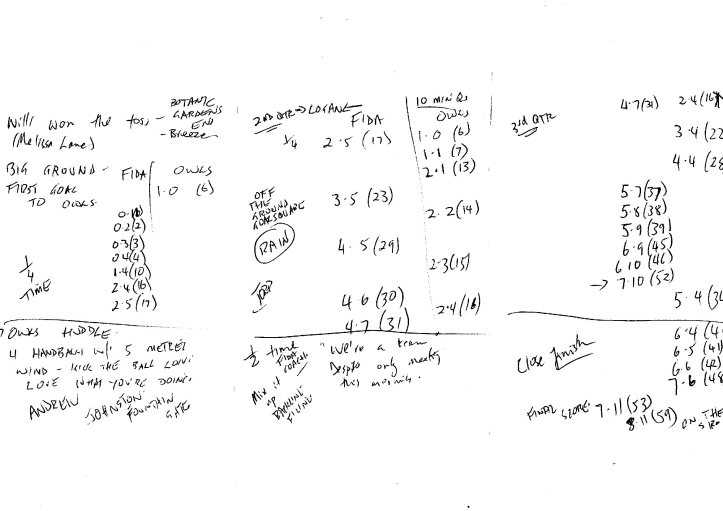 Wills won the toss - BOTANIC
GARDENS
END
(Melissa Lane) - Breeze
BIG GROUND - FIDA OWLS
FIRST GOAL 1.0 (6)
TO OWLS
0.1(1)
0.2(2)
0.3(3)
0.4(4)
1.4(10)
2.4(16)
2.5(17)
1/4
TIME
OWLS HUDDLE
4 HANDBALLS W/ 5 METRES
WIND - KICK THE BALL LONG.
LOVE WHAT YOU'RE DOING.
ANDREW
JOHNSTON
FOUNTAIN
GATE
2ND QTR → LOGANE
FIDA
10 MIN Qs
OWLS
1/4 2.5 (17)
1.0 (6)
1.1 (7)
2.1 (13)
OFF
THE
GROUND
3.5 (23)
2.2 (14)
RAIN
4.5 (29)
2.3 (15)
4.6 (30)
2.4 (16)
4.7 (31)
1/2 time
"We're a team
Despite only meeting
this morning.
Mix it
up
3rd QTR
4.7(31) 2.4(16)
3.4 (22
4.4 (28
5.7(37)
5.8(38)
5.9(39)
6.9(45)
6.10(46)
→ 7.10(52)
5.4 (34
6.4 (4
6.5 (41
6.6 (42)
7.6 (48
Close finish
FINAL SCORE: 7.11(53)
8.11(59) ON THE